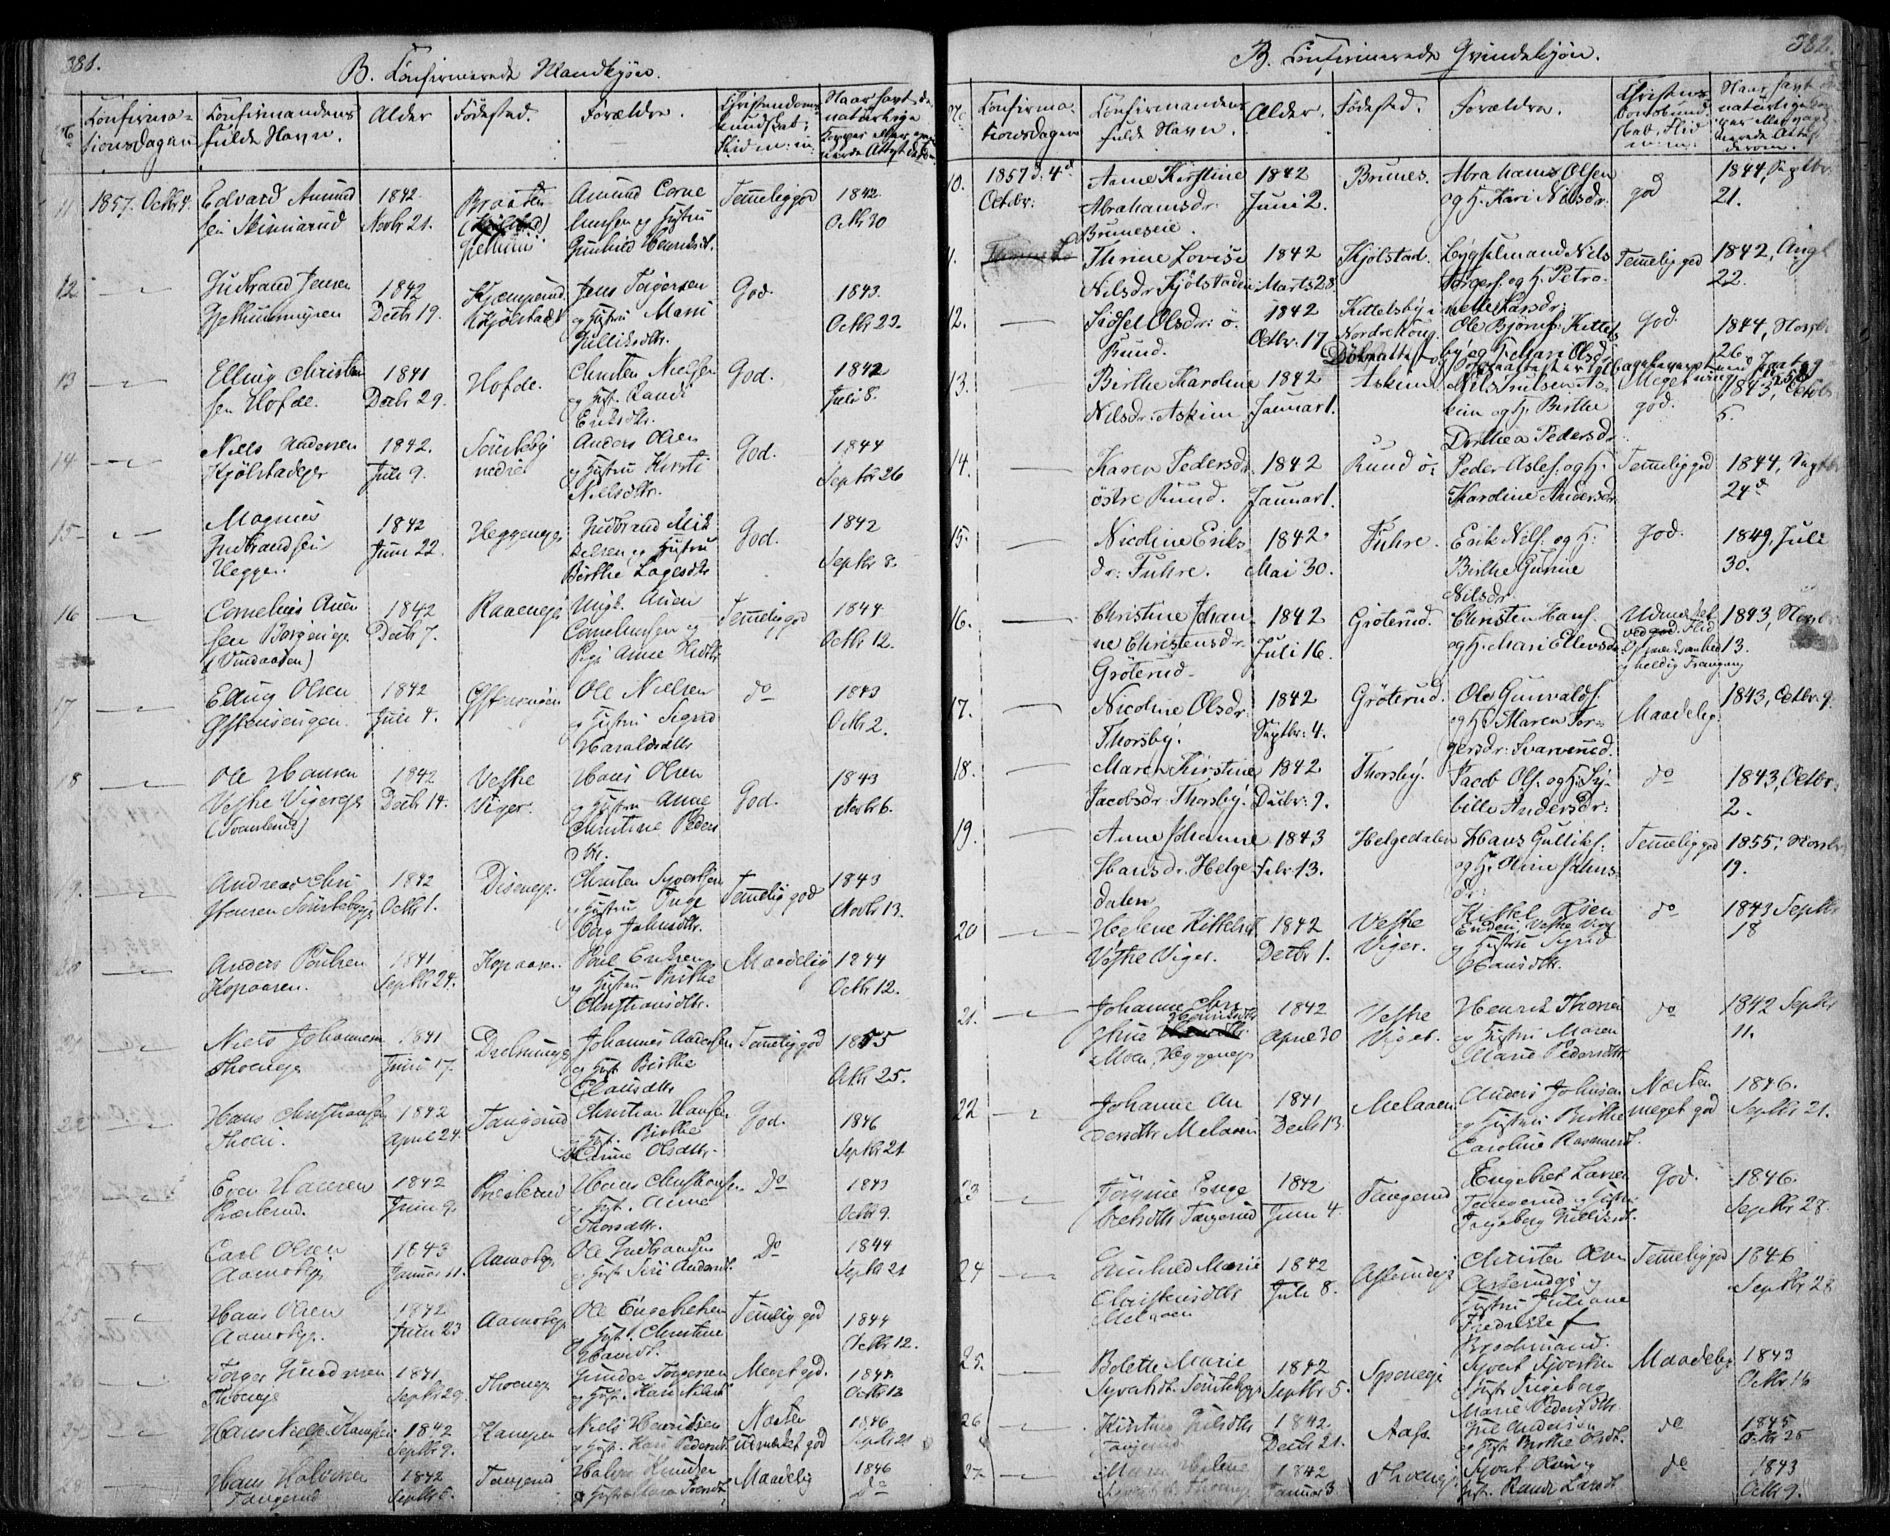 381.
B. Confirmerede Mandkjøn.
No
Confirma-
tionsdagen
Confirmandens
fulde Navn.
Alder
Födested.
Forældre.
Christendoms-
kundskab,
Flid m: m:
Naar havt de
naturlige
Kopper eller vacci-
nerede Attest derom
11
1857. Octbr 4.
Edvard Amund
sen Skinnarud
1842.
Novbr 21.
Braaten
Amund Corne
liussen og Hustru
Gunhild
Temmelig god
1842
Octbr 30
12
Gudbrand Jensen
1842
Decbr 19.
Kjølstad
Jens Torgersen
og Hustru Mari
Gulliksdtr.
God.
1843.
Octbr 23.
13
Elling Christen
sen Hofde.
1841
Decbr 29.
Hofde.
Christen Nielsen
og Hust. Randi
Eriksdtr.
God.
1842
Juli 8.
14
Niels Andersen
Kjølstadeje
1842.
Juli 9.
Sönsteby
nedre
Anders Olsen
og Hustru Kirsti
Nielsdtr.
God.
1844
Septbr 26
15
Magnus
Gudbrandsen
Hegge.
1842
Juni 22.
Heggeneje
Gudbrand Mik
kelsen og Hustru
Birthe Lagesdtr
God.
1842
Septbr 8.
16
Cornelius Auen
sen
1842
Decbr 7.
Raaeneje
Ungk. Auen
Corneliussen og
Pige Anne
Temmelig god
1844
Octbr 12.
17
Elling Olsen
Østensengen.
1842
Juni 4.
Østensengen
Ole Nielsen
og Hustru Sigrid
Haraldsdtr
do
1843
Octbr 2.
18
Ole Hansen
Vestre Vigereje
1842
Decbr 14.
Vestre
Viger.
Hans Olsen
og Hustru Anne
Christine Peders
dtr.
God.
1843
Novbr 6.
19.
Andreas Chri
stensen Sönstebyeje
1842
Octbr 1.
Diseneje.
Christen Syvertsen
og Hustru Inge
borg Johnsdtr.
Temmelig god
1843
Novbr 13.
20
Anders Poulsen
Kopaasen.
1841
Septbr 24.
Kopaasen.
Poul Eriksen
og Hustru Birthe
Christiansdtr.
Maadelig
1844
Octbr 12.
21
Niels Johannesen
Thoeneje
1841
Juni 17.
Johannes Andersen
og Hust. Birthe
Clausdtr
Temmelig god
1855
Octbr 25.
22
Hans Christiansen
Thoen.
1842
April 24.
Tangerud
Christian Hansen
og Hust. Birthe
Karine Olsdtr.
God.
1846
Septbr 21
23
Even Hansen
Præsterud.
1842
Juni 9.
Præsterud
Hans Christiansen
og Hust. Anne
Thorsdtr.
Do
1843
Octbr 9.
24
Carl Olsen
Aamoteje
1843
Januar 11.
Aamoteje
Ole Gudbrandsen
og Hust. Siri Andersdt.
Do
1844
Septbr 21
25
Hans Olsen
Aamoteje.
1842
Juni 23
Aamoteje
Ole Engebretsen
og Hust. Christine
Hansdt.
Temmelig god
1844
Octbr 12.
26
Torger Gundersen
Thoeneje
1841
Septbr 29.
Thoeneje
Gunder Torgersen
og Hust. Kari Nilsdt
Meget god.
1844
Octbr 12
27
Hans Nielsen Kampen
1842
Septbr 9.
Kampen
Niels Henriksen
og Hust. Kari Pedersdt
Næsten
udmærket god
1846
Septbr 21
28
Hans Halvorsen
Tangerud
1842
Septbr 5.
Tangerud
Halvor Knudsen
og Hustru
Maadelig
1846
Do
382.
B. Confirmerede Qvindekjøn.
No
Confirma-
tionsdagen
Confirmandens
fulde Navn.
Alder.
Födested.
Forældre.
Christen-
domskund-
skab, Flid
m: m:
Naar havt de
naturlige Kop-
per eller vacci-
nerede Attest
derom.
10.
1857 d. 4de
Octbr:
Anne Kirstine
Abrahamsdr.
Bruneseie.
1842
Juni 2.
Brunes.
Abraham Olsen
og H. Kari Nilsdr.
god
1844, Septbr.
21.
11.
Thrine Lovise
Nilsdr. Kjölstadeie
1842
Marts 28.
Kjölstad.
Lygselmand Nils
Torgers. og H. Petro-
nelle Larsdr:
Temmelig god
1842, Aug.
22.
12.
Sidsel Olsdr: ö.
Rund.
1842
Octbr. 17
Kittelsby i
Nordrehoug
Ole Björns. Kittels
by og H. Mari Olsdr.
God.
1844, Novbr.
26.
13.
Birthe Karoline
Nilsdr: Askim
1842
Januar 1.
Askim
Nils Truelsen As-
kim og H. Birthe
Dorthea Pedersdr.
Meget
god.
1843, Octobr
5.
14.
Karen Pedersdr.
östre Rund.
1842
Januar 1.
Rund ö:
Peder Aslef: og H.
Karoline Andersdr
Temmelig god
1844, Septbr
24de
15.
Nicoline Eriks-
dr: Fuhre.
1842.
Mai 30.
Fuhre.
Erik Nils. og H:
Birthe Gurine
Nilsdr:
God.
1849, Juli
30.
16.
Christine Johan
ne Christensdr.
Gröterud.
1842
Juli 16.
Gröterud.
Christen Hans.
og H. Mari Ellevsdr.
Udmærket
1843, Novbr.
13.
17.
Nicoline Olsdr.
Thorsby.
1842
Septbr: 4.
Gröterud.
Ole Gunvalds.
og H: Maren Tor-
gersdr: Svarverud.
Maadelig.
1843, Octbr. 9.
18.
Maren Kirstine
Jacobsdr. Thorsby.
1842
Decbr: 9.
Thorsby.
Jacob Ols. og H. Sy-
bille Andersdr:
do
1843, Octbr:
2.
19.
Anne Johanne
Hansdr. Helge
dalen
1843
Febr 13.
Helgedalen
Hans Gulliks.
og H. Oline Johns-
dr:
Temmelig god
1855, Novbr.
19.
20
Helene Kittelsdt
Vestre Viger.
1842
Decbr 1.
Vestre
Viger.
Kittel Röien
Enden, Vestre Viger
og Hustru Sigrid
Hansdtr.
do
1843 Septbr
18
21.
Johanne Chri
stine Henriksdtr
Moen, Heggeneje
1842
April 30
Vestre
Viger.
Henrik Thoresen
og Hustru Maren
Marie Pedersdtr
do
1842 Septbr
11.
22
Johanne An
dersdtr Melaaen
1841
Decbr 13.
Melaaen
Anders Johnsen
og Hustru Birthe
Caroline Rasmusdt.
Næsten
meget god
1846.
Septbr 21.
23
Jörgine Enge
bretsdtr Tangerud
1842
Juni 4.
Tangerud
Engebret Larsen
Tangerud og Hustru
Ingeborg Gulliksdt.
God.
1846.
Septbr 28.
24
Gunhild Marie
Christensdtr
Melaaen
1842
Juli 8.
Asterudeje
Christen Olsen
Asterudeje og
Hustru Juliane
Fredrikke f
Brochmand.
Temmelig god
1846
Septbr 28
25.
Bolette Marie
Syvertsdt. Sönstebyeje
1842
Septbr 5.
Sponeje
Syvert Syvertsen
og Hust. Ingeborg
Marie Pedersdtr
Maadelig
1843
Octbr 16
26
Kirstine
Tangerud
1842
Decbr 21.
Aas
Andersen
og Hust. Birthe Olsdt.
do
1845
Octbr 25
27
Maren Helene
1842
Januar 3
Thoeneje
Syvert
Hust. Randi Larsdt
do
1843
Octbr 9.